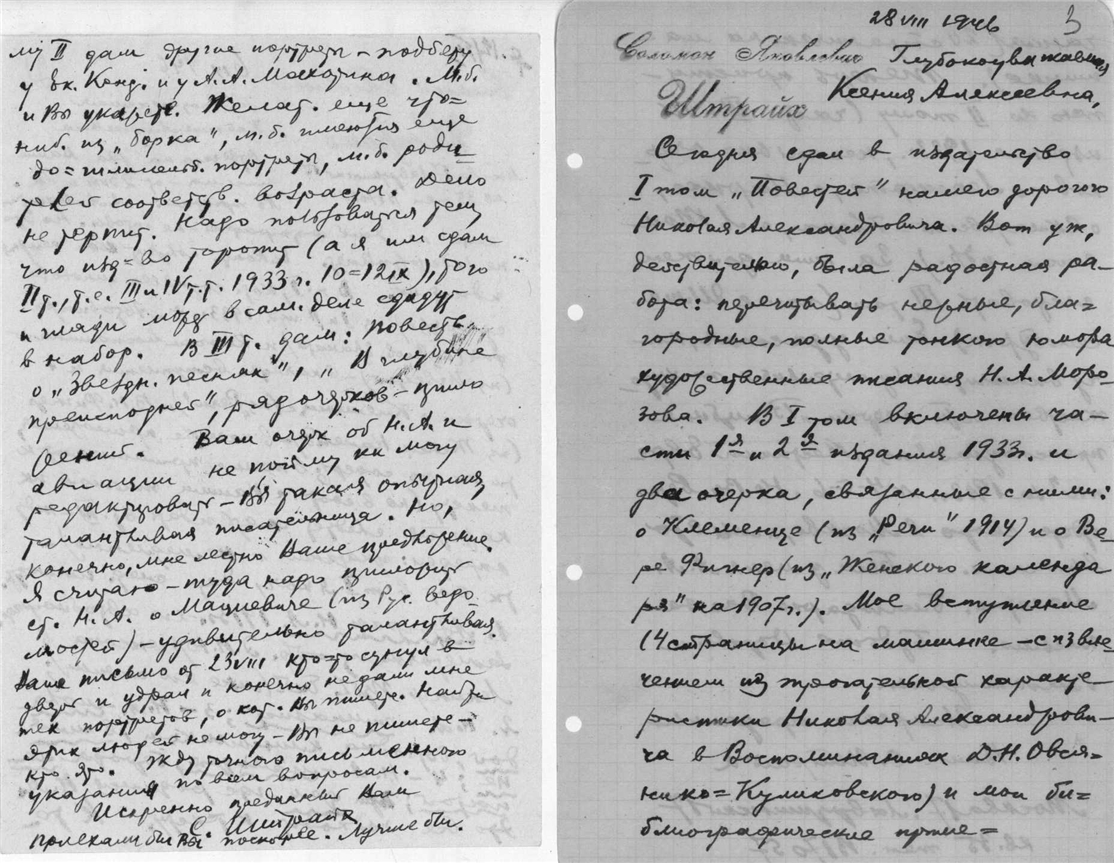 му II дам другие портреты – подберу
у Вк. Конд. и у А.А. Маскотина. М.б.
и Вы укажете. Желат. еще что=
ниб. из „Борка", м.б. имеются еще
до=шлиссельб. портреты, м.б. роди=
телей соответств. возраста. Дело
не терпит. Надо пользоваться тем,
что изд=во торопит (а я им сдам
II т., т.е. III и IV т.т. 1933 г. 10=12 IX), того
и гляди может в сам. деле сдадут
в набор. В III т. дам: повесть
о „Звездн. песнях", „В глубине
преисподней", ряд очерков –
Ваш очерк об Н.А. и
авиации не пойму как могу
редактировать – Вы такая опытная,
талантливая писательница. Но,
конечно, мне лестно Ваше предложение.
Я считаю – туда надо приложить
ст. Н.А. о Мациевиче (из Рус. Ведо
мостей) – удивительно талантливая.
Ваше письмо от 23 VIII кто=то сунул в
дверь и удрал и конечно не дали мне
тех портретов, о кот. Вы пишете. Найти
этих людей не могу – Вы не пишете –
кто это. Жду точного письменного
указания по всем вопросам.
Искренно преданный Вам
С. Штрайх
Приехали бы Вы поскорее. Лучше бы.
28 VIII 1946
3
Соломон Яковлевич
Штрайх
Глубокоуважаемая
Ксения Алексеевна,
Сегодня сдал в издательство
I том „Повестей" нашего дорогого
Николая Александровича. Вот уж,
действительно, была радостная ра-
бота: перечитывать нежные, бла-
городные, полные тонкого юмора
художественные писания Н.А. Моро-
зова. В I том включены ча-
сти 1я и 2я издания 1933 г. и
два очерка, связанные с ними:
о Клеменце (из „Речи" 1914) и о Ве-
ре Фигнер (из „Женского календа
ря" на 1907 г.). Мое вступление
(4 страницы на машинке – с извле
чением из трогательной характе
ристики Николая Александрови-
ча в Воспоминаниях Д.Н. Овся=
нико=Куликовского) и мои би-
блиографические приме=